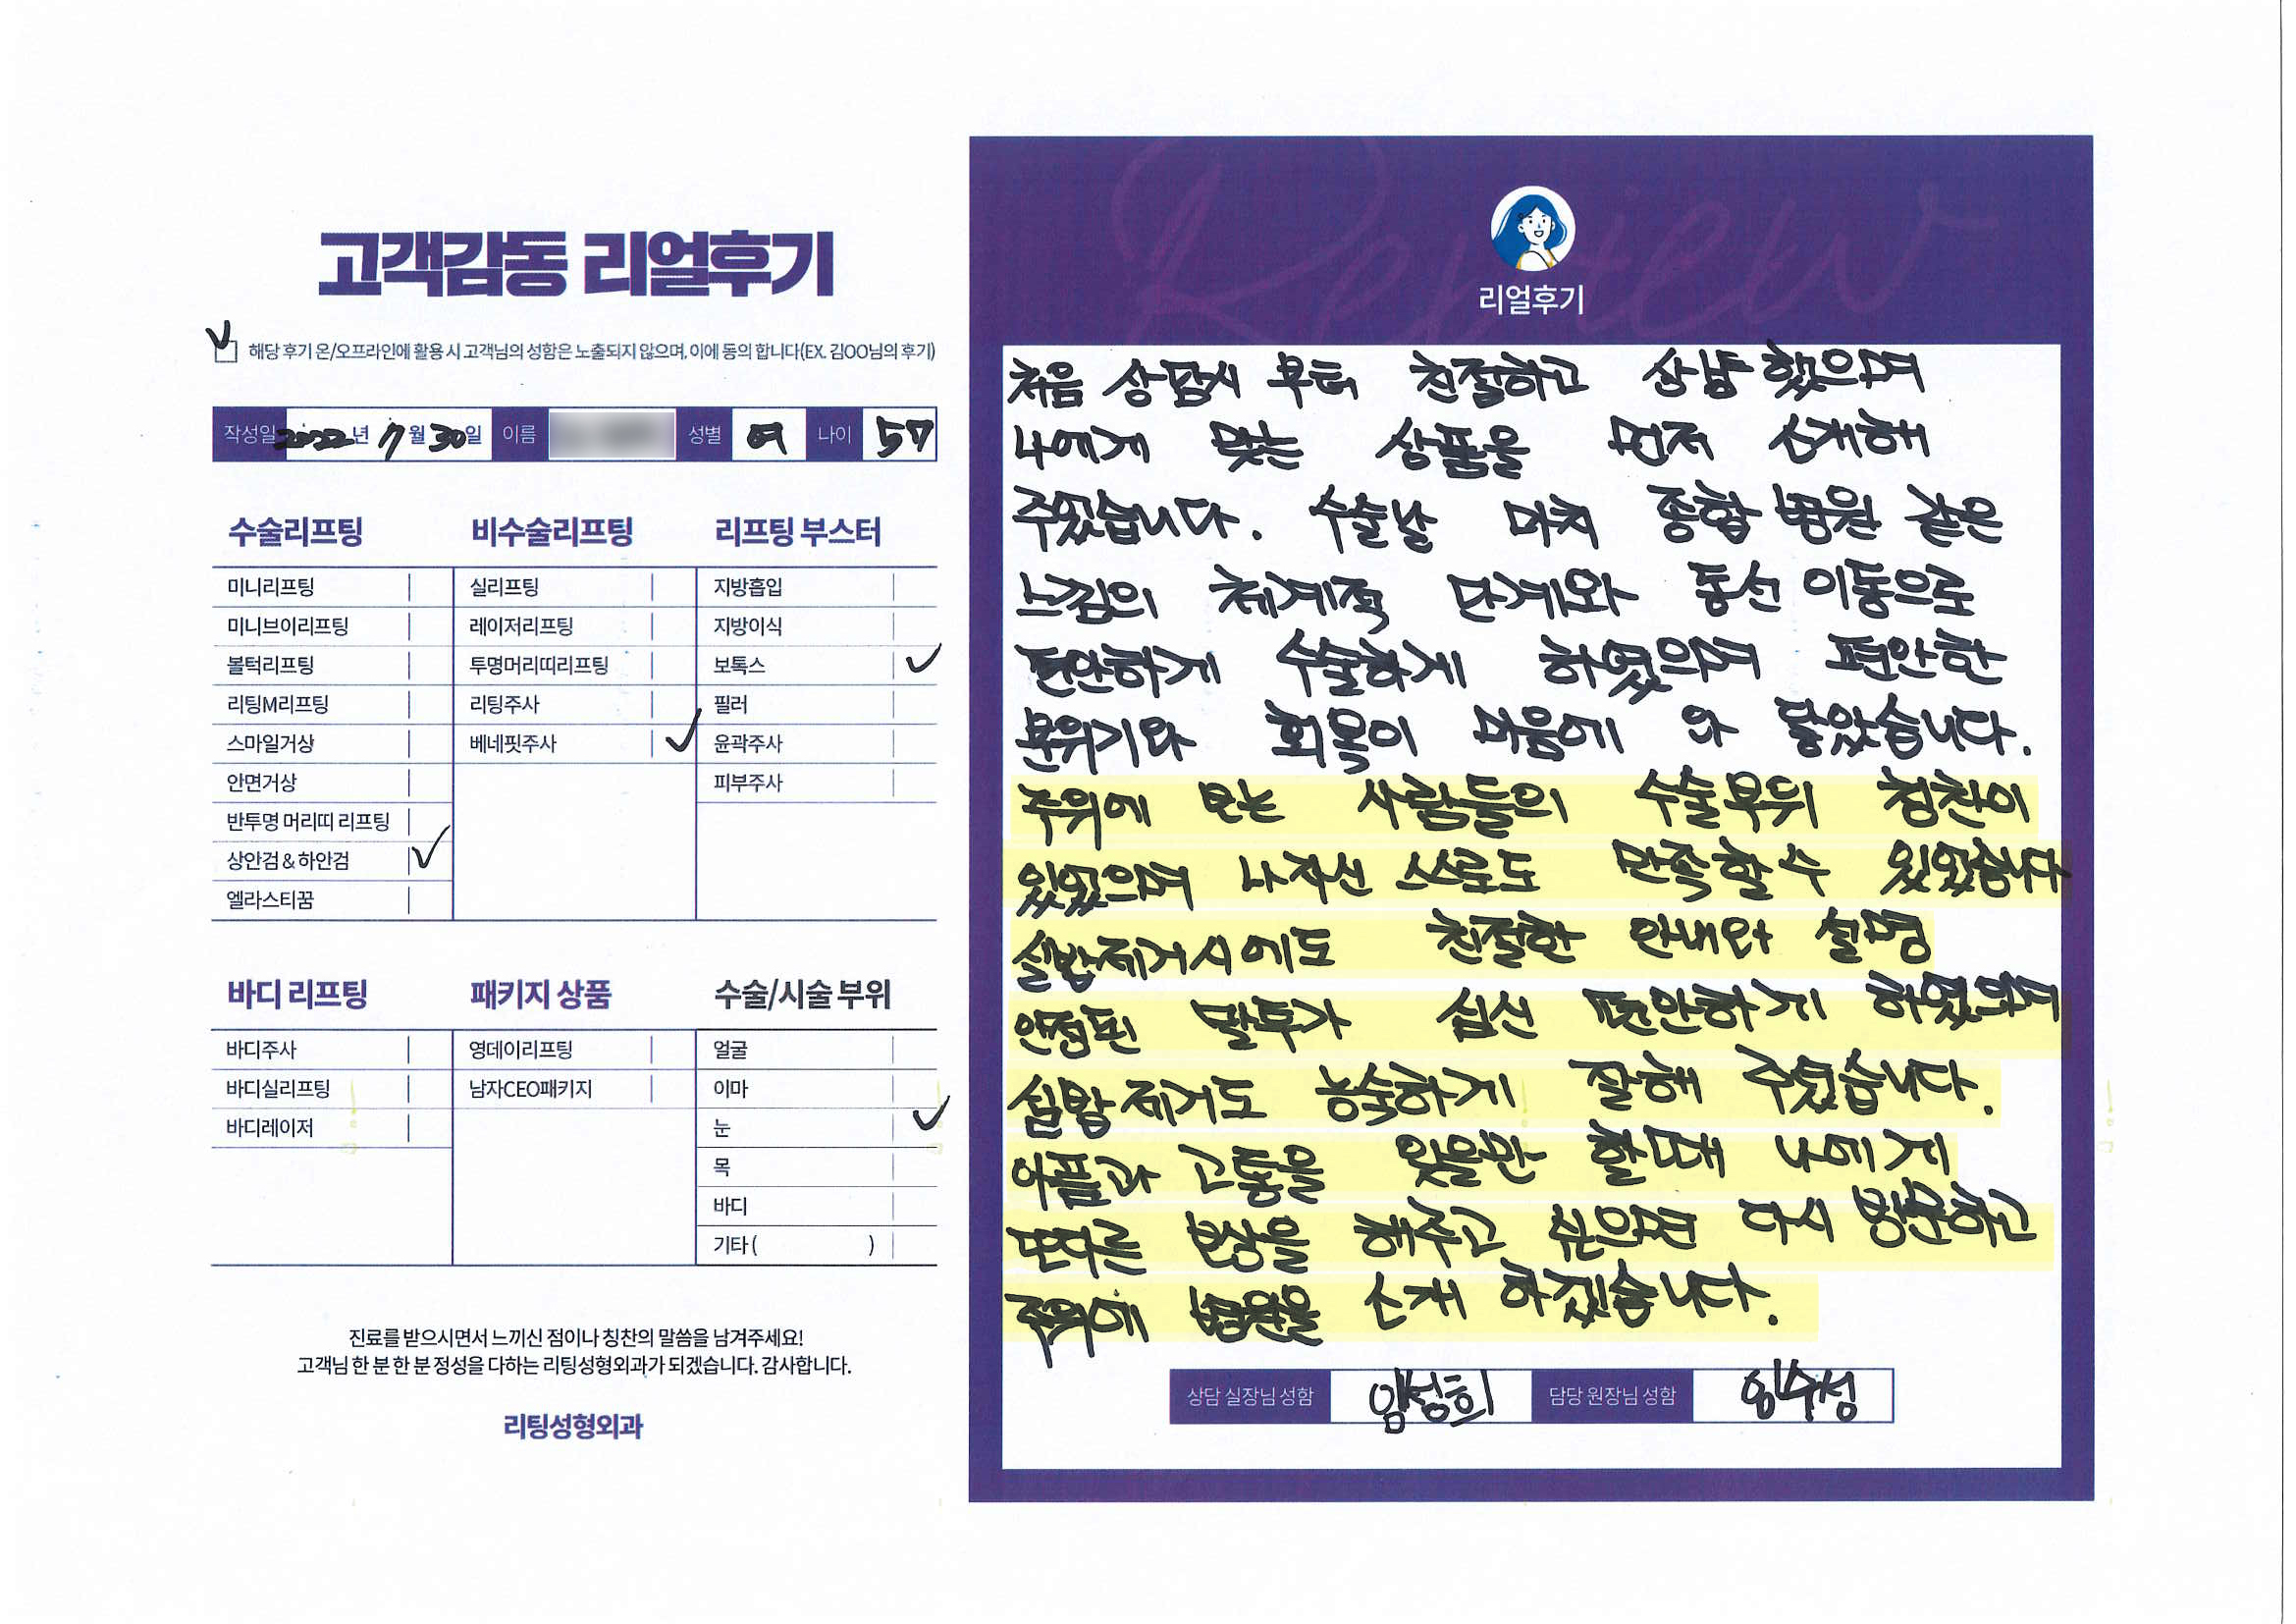 고객감동 리얼후기
해당 후기 온/오프라인에 활용 시 고객님의 성함은 노출되지 않으며, 이에 동의 합니다(EX. 김OO님의 후기)
작성일 2022년 7월 30일 이름 성별 여 나이 57
수술리프팅
미니리프팅
미니브이리프팅
볼턱리프팅
리팅M리프팅
스마일거상
안면거상
반투명 머리띠 리프팅
상안검 & 하안검
엘라스티꿈
비수술리프팅
실리프팅
레이저리프팅
투명머리띠리프팅
리팅주사
베네핏주사
리프팅 부스터
지방흡입
지방이식
보톡스
필러
윤곽주사
피부주사
바디 리프팅
바디주사
바디실리프팅
바디레이저
패키지 상품
영데이리프팅
남자CEO패키지
수술/시술 부위
얼굴
이마
눈
목
바디
기타 ( )
진료를 받으시면서 느끼신 점이나 칭찬의 말씀을 남겨주세요!
고객님 한 분 한 분 정성을 다하는 리팅성형외과가 되겠습니다. 감사합니다.
리팅성형외과
Review
리얼후기
처음 상담시 부터 친절하고 상냥 했으며
나에게 맞는 상품을 먼저 소개해
주었습니다. 수술날 마치 종합 병원 같은
느낌의 체계적 단계와 동선 이동으로
편안하게 수술하게 하였으며 편안한
분위기와 회복이 마음에 와 닿았습니다.
주위에 보는 사람들의 수술부위 칭찬이
있었으며 나자신 스스로도 만족할 수 있었습니다
실밥제거시에도 친절한 안내와 설명
안정된 말투가 심신 편안하게 하였으며
실밥 제거도 능숙하게 잘해 주셨습니다.
아픔과 고통을 잊을만 할때 나에게
또다른 보상을 해주고 싶으면 다시 방문하고
주위에 병원을 소개 하겠습니다.
상담 실장님 성함 임성희 담당 원장님 성함 임수성